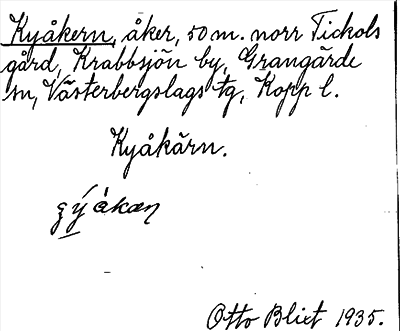 Kyåkern, åker, 50 m. norr Tichols
gård, Krabbsjön by, Grangärde
sn, Västerbergslags tg, Kopp l.
Kyåkärn.
Otto Blixt 1935.